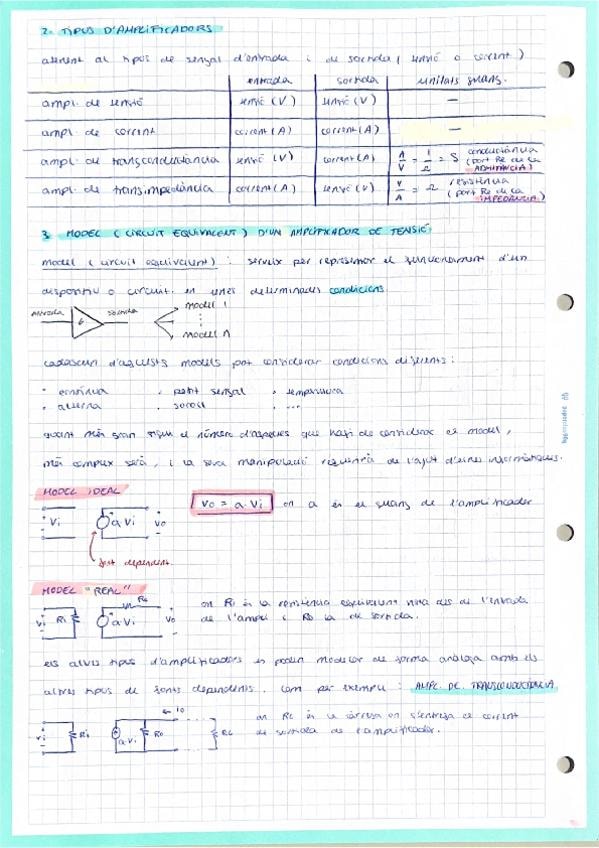 2. TIPUS D'AMPLIFICADORS
atenent al tipus de senyal d'entrada i de sortida (tensió o corrent)
entrada sortida unitats guany.
ampl. de tensió tensió (V) tensió (V) —
ampl. de corrent corrent (A) corrent (A) —
ampl. de transconductància tensió (V) corrent (A) A/V = 1/Ω = S conductància (part Re de la ADMITÀNCIA)
ampl. de transimpedància corrent (A) tensió (V) V/A = Ω resistència (part Re de la IMPEDÀNCIA)
3. MODEL (CIRCUIT EQUIVALENT) D'UN AMPLIFICADOR DE TENSIÓ
model (circuit equivalent): serveix per representar el funcionament d'un
dispositiu o circuit en unes determinades condicions
entrada sortida model 1
⋮
model n
cadascun d'aquests models pot considerar condicions diferents:
· contínua · petit senyal · temperatura
· alterna · soroll · ...
quant més gran sigui el número d'aspectes que hagi de considerar el model,
més complex serà, i la seva manipulació requerirà de l'ajut d'eines informàtiques.
MODEL IDEAL
Vi a·Vi Vo
Vo = a·Vi on a és el guany de l'amplificador
font dependent.
MODEL "REAL"
Vi Ri a·Vi Ro Vo
on Ri és la resistència equivalent vista des de l'entrada
de l'ampli i Ro la de sortida.
els altres tipus d'amplificadors es poden modelar de forma anàloga amb els
altres tipus de fonts dependents. Com per exemple: AMPL. DE TRANSCONDUCTÀNCIA
Vi Ri a·Vi Ro io RL
on RL és la càrrega on s'entrega el corrent
de sortida de l'amplificador.